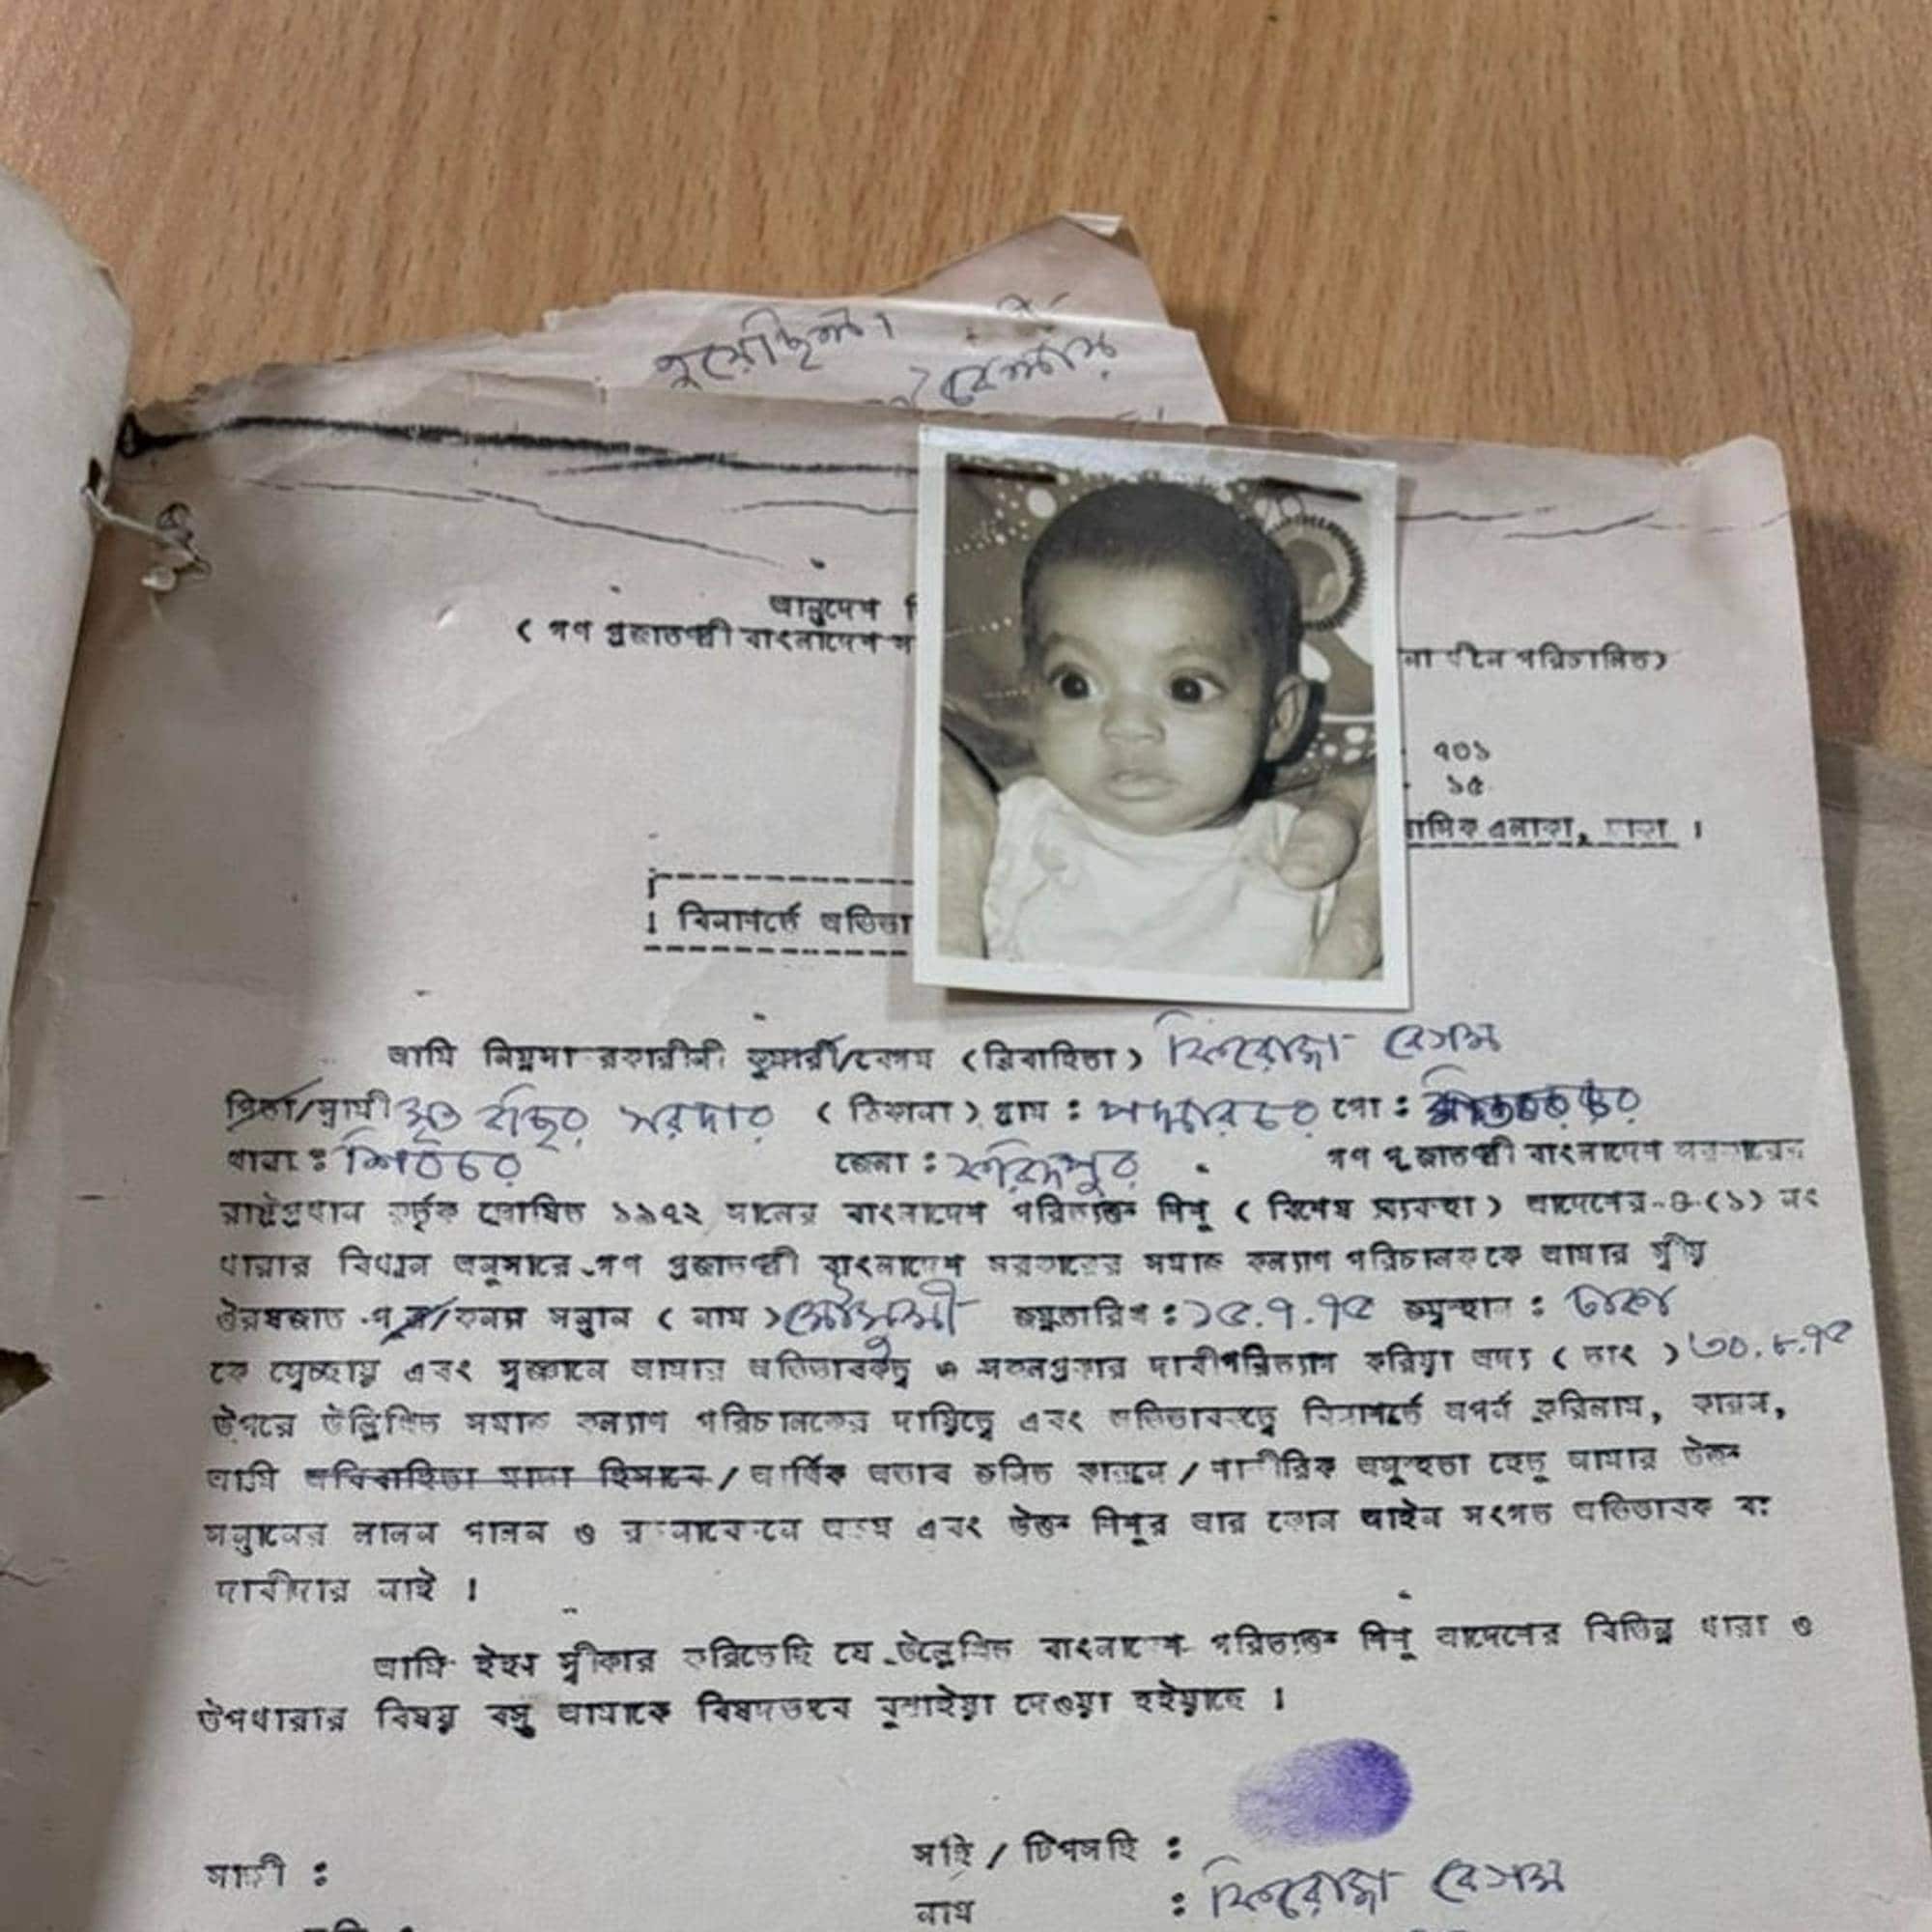 বাংলাদেশ
( গণ প্রজাতন্ত্রী বাংলাদেশ স
না ধীনে পরিচালিত)
৭০১
১৫
এলাকা, ঢাকা ।
বিনাশর্তে অভিভা
আমি নিম্নস্বা ক্ষরকারীনী কুমারী/বেগম (বিবাহিতা) ফিরোজা বেগম
পিতা/স্বামী মৃত বছির সরদার ( ঠিকানা ) গ্রাম : পদ্মারচর পো :
থানা : শিবচর জেলা : ফরিদপুর গণ প্রজাতন্ত্রী বাংলাদেশ সরকারের
রাষ্ট্রপ্রধান কর্তৃক ঘোষিত ১৯৭২ সালের বাংলাদেশ পরিত্যক্ত শিশু ( বিশেষ ব্যবস্থা ) আদেশের-৪-(১) নং
ধারার বিধান অনুসারে গণ প্রজাতন্ত্রী বাংলাদেশ সরকারের সমাজ কল্যাণ পরিচালককে আমার স্বীয়
ঔরষজাত পুত্র/কন্যা সন্তান ( নাম ) মৌসুমী জন্মতারিখ : ১৫.৭.৭৫ জন্মস্থান : ঢাকা
কে স্বেচ্ছায় এবং স্বজ্ঞানে আমার অভিভাবকত্ব ও সকলপ্রকার দাবীপরিত্যাগ করিয়া অদ্য ( তাং ) ৩০.৮.৭৫
উপরে উল্লিখিত সমাজ কল্যাণ পরিচালকের দায়িত্বে এবং অভিভাবকত্বে বিনাশর্তে অর্পণ করিলাম, কারন,
আমি অবিবাহিতা মাতা হিসাবে/আর্থিক অভাব জনিত কারনে/শারীরিক অসুস্থতা হেতু আমার উক্ত
সন্তানের লালন পালন ও রক্ষনাবেক্ষনে অক্ষম এবং উক্ত শিশুর আর কোন আইন সংগত অভিভাবক বা
দাবীদার নাই ।
আমি ইহা স্বীকার করিতেছি যে উল্লেখিত বাংলাদেশ পরিত্যক্ত শিশু আদেশের বিভিন্ন ধারা ও
উপধারার বিষয় বস্তু আমাকে বিষদভাবে বুঝাইয়া দেওয়া হইয়াছে ।
সাক্ষী :
সহি / টিপসহি :
নাম : ফিরোজা বেগম